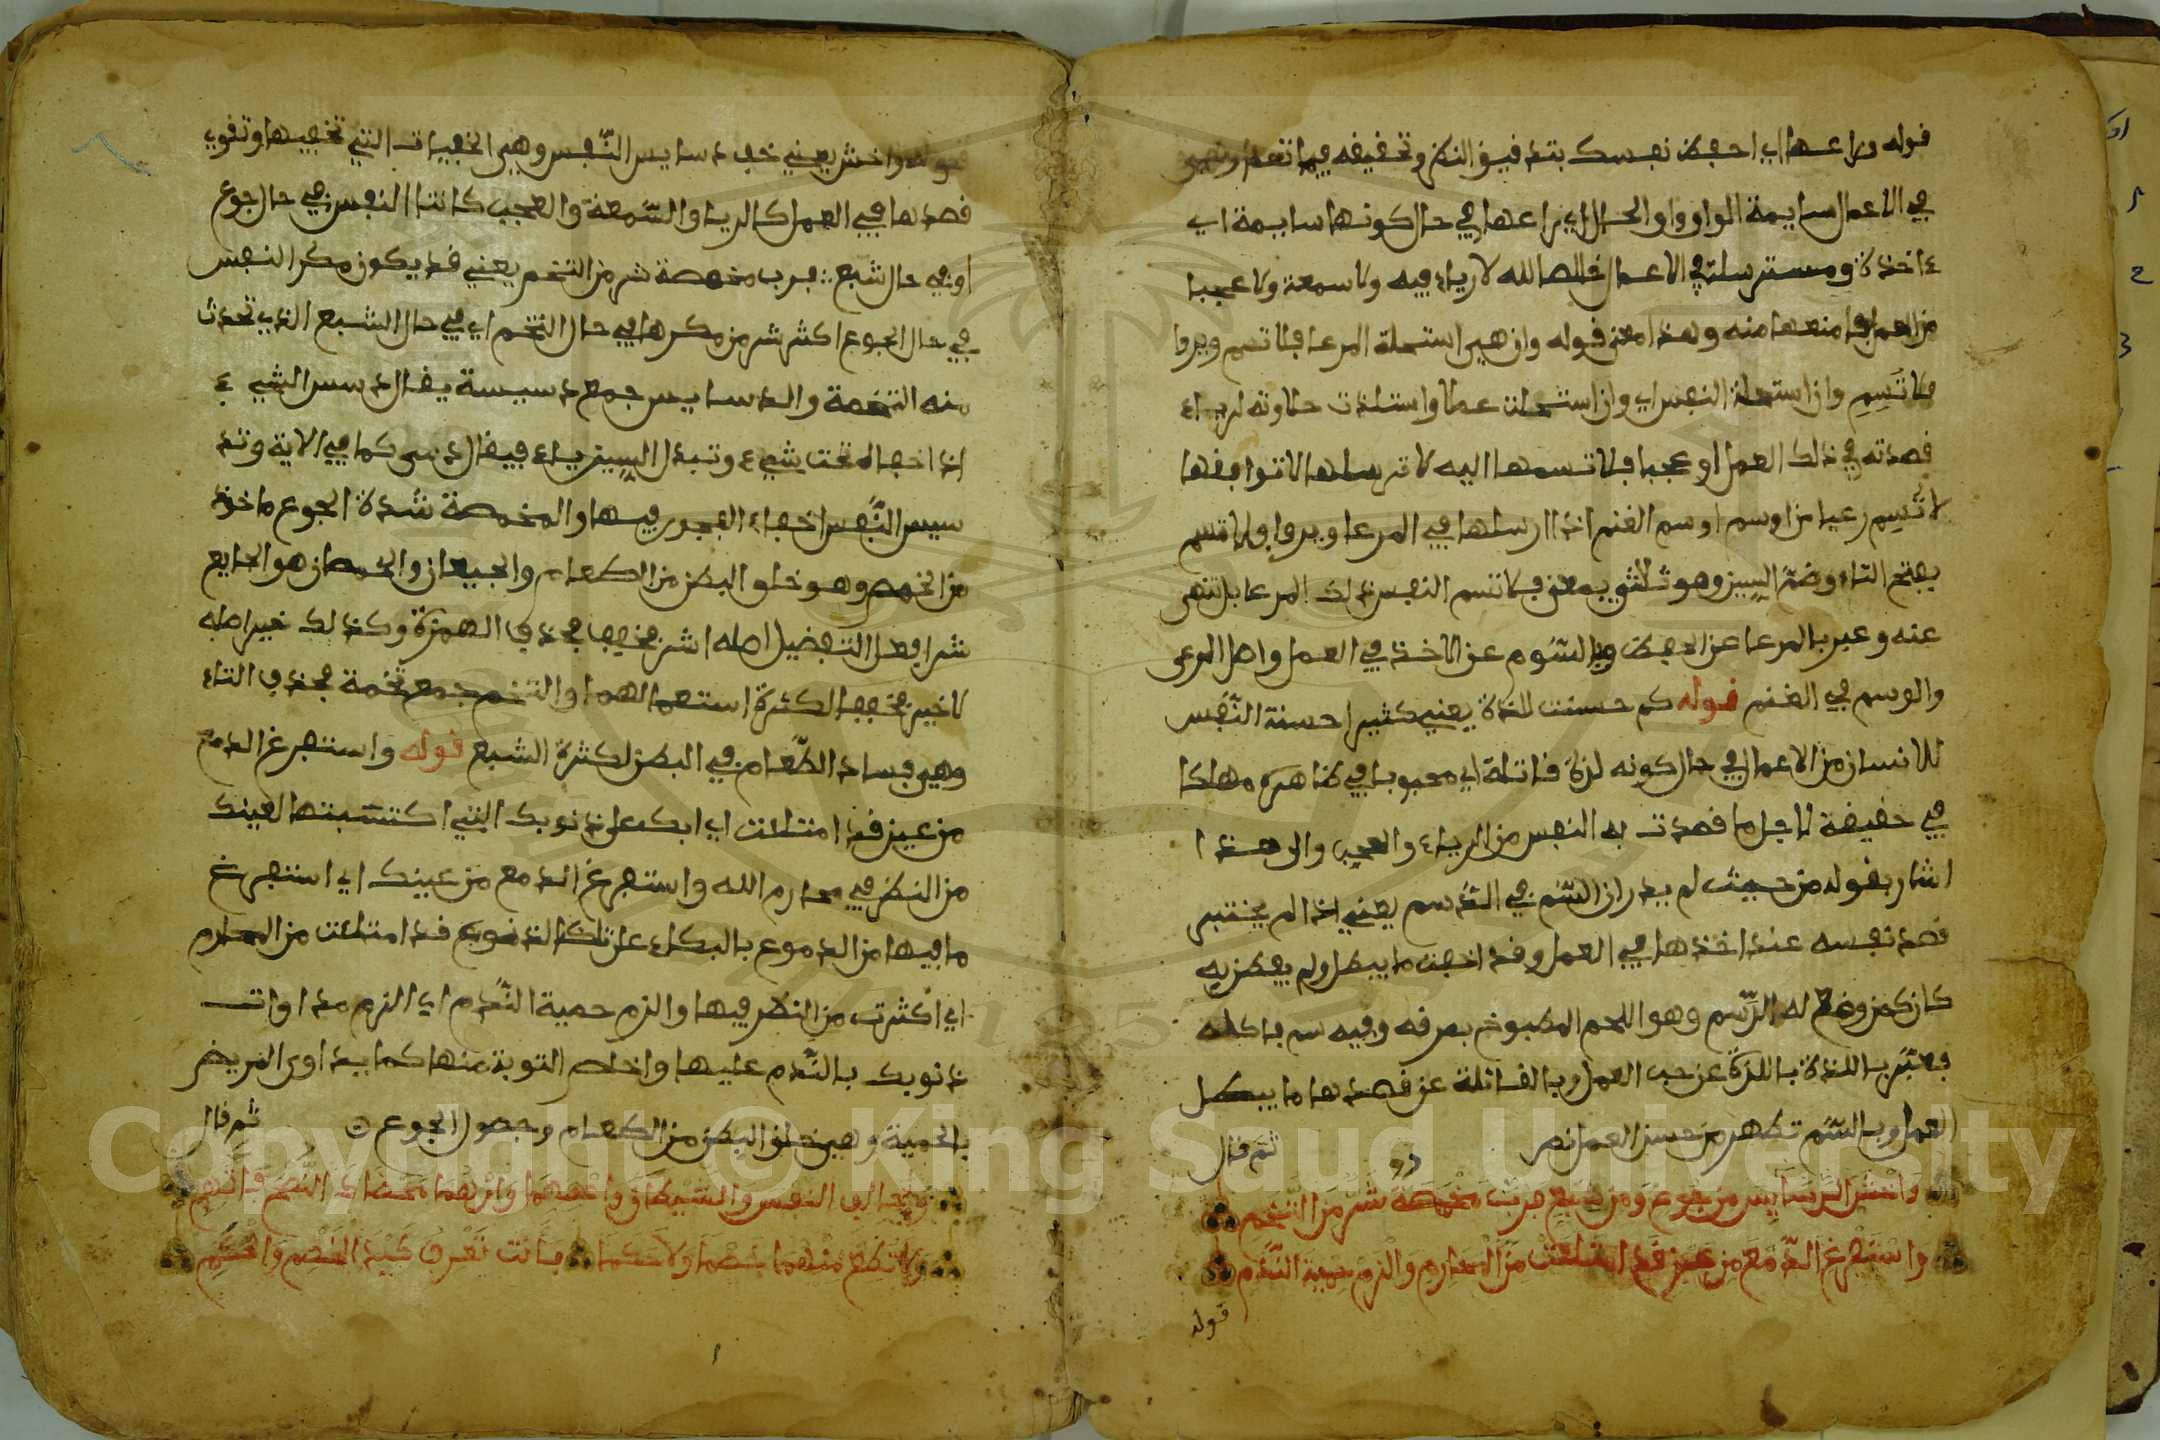 قوله وراعها اي احفظ نفسك بتدقيق النظر وتحقيقه فيما تعمل وهي
في الاعمال سايمة الواو واو الحال اي راعها في حال كونها سايمة اي
ءاخذة ومسترسلة في الاعمال خالصا لله لا رياء فيه ولا سمعة ولا عجبا
من العمل فامنعها منه وهذا معنى قوله وان هي استحلة المرعا فلا تسم ويروا
فلا تَسِمِ وان استحلة النفس اي وان استحلت عملا واستلذت حلاوته لرياء
قصدته في ذلك العمل او عجبا فلا تسمها اليه لا ترسلها لا توافقها
لا تُسِم رعيا من اوسم اوسم الغنم اذا ارسلها في المرعا ويروا ولا تسم
بفتح التاء وضمّ السين وهو ثلاثي بمعنى فلا تسم النفس ذلك المرعا بل تنهى
عنه وعبر بالمرعا عن الحفظ وبالسَّوم عن الاخذ في العمل واصل الرعي
والوسم في الغنم قوله كم حسنت للذة يعني كثيرا حسنة النَّفس
للانسان من الاعمال في حال كونه لذة قاتلة اي محبوبا في ظاهره مهلكا
في حقيقة لاجل ما قصدت به النفس من الرياء والعجب والى هذا
اشار بقوله من حيث لم يدر ان السّم في الدّسم يعني اذا لم يختبر
قصد نفسه عند اخذها في العمل وقد اخفت ما يبطل ولم يفطن به
كان كمن وضع له الدّسم وهو اللحم المطبوخ بمرقه وفيه سم فاكله
فعبّر باللذة باللذة عن حب العمل وبالقاتلة عن قصدها ما يبطل
العمل وبالسّم تظهر من حسن العمل نصر ثم قال
واخش الدسايس من جوع ومن شبع فرب مخمصة شر من التخم
واستفرغ الدّمع من عين قد امتلات من المحارم والزم حمية النَّدَم
قوله
قوله واخش يعني خف دسايس النّفس وهي الخفيات التي تخفيها وتقوي
قصدها في العمل كالرياء والسّمعة والعجب كانتا النفس في حال جوع
او في حال شبع فرب مخمصة شر من التخم يعني قد يكون مكر النفس
في حال الجوع اكثر شر من مكرها في حال التخم اي في حال الشبع الذي تحدث
منه التخمة والدسايس جمع دسيسة يقال دسس الشيء
اذا اخفا له تحت شيء وتبدل السين ياء فيقال دسى كما في الاية وتد
سيس النَّفس اخفاء الفجور فيها والمخمصة شدة الجوع ماخوذ
من الخمص وهو خلو البطن من الطعام والجيعان والخمصان هو الجايع
شر افعل التفضيل اصله اشر مخفيا بحذف الهمزة وكذلك خير اصله
لاخير مخففا لكثرة استعمالهما والتخم جمع تخمة بحذف التاء
وهي فساد الطّعام في البطن لكثرة الشبع قوله واستفرغ الدمع
من عين قد امتلات اي ابك على ذنوبك التي اكتسبتها لعينك
من النظر في محارم الله واستفرغ الدمع من عينك اي استفرغ
ما فيها من الدموع بالبكاء على تلك الذنوب قد امتلات من المحارم
اي اكثرت من النظر فيها والزم حمية النّدم اي الزم مداوات
ذنوبك بالنَّدم عليها واخلص التوبة منها كما يداوى المريض
بالحمية وهي خلو البطن من الطعام وحصول الجوع ثم قال
وخالف النفس والشيطان واعصهما وان هما محضاك النُّصح فاتّهم
ولا تطع منهما خصما ولا حكما فانت تعرف كيد الخصم والحكم